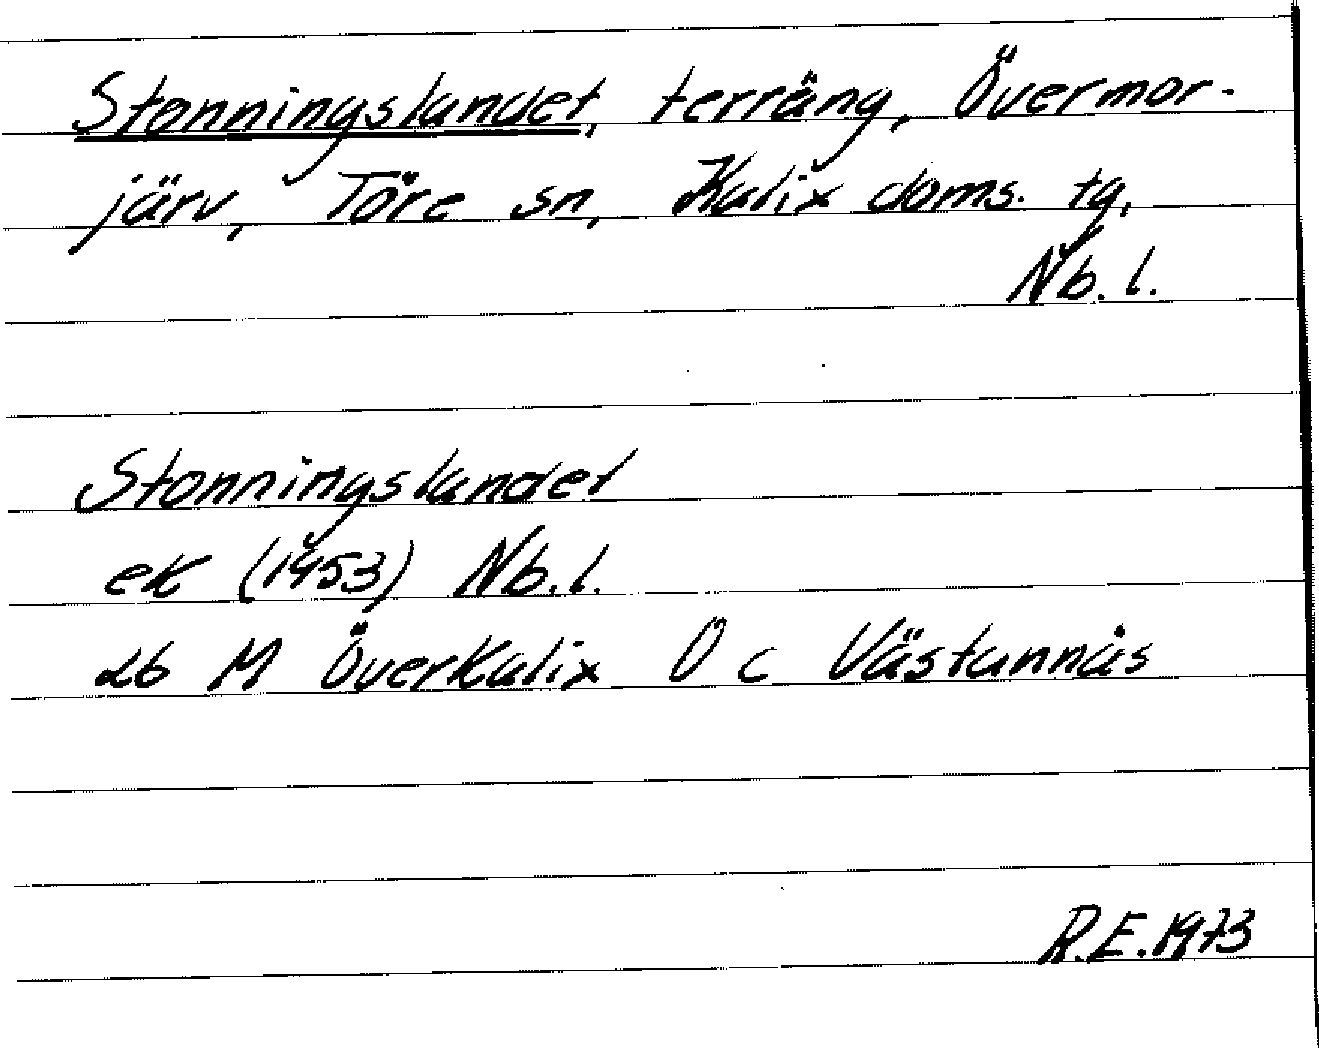 Stonningslandet, terräng, Övermor-
järv, Töre sn, Kalix doms. tg,
Nb. l.
Stonningslandet
ek (1953) Nb. l.
26 M Överkalix Ö c Västannäs
R.E. 1973